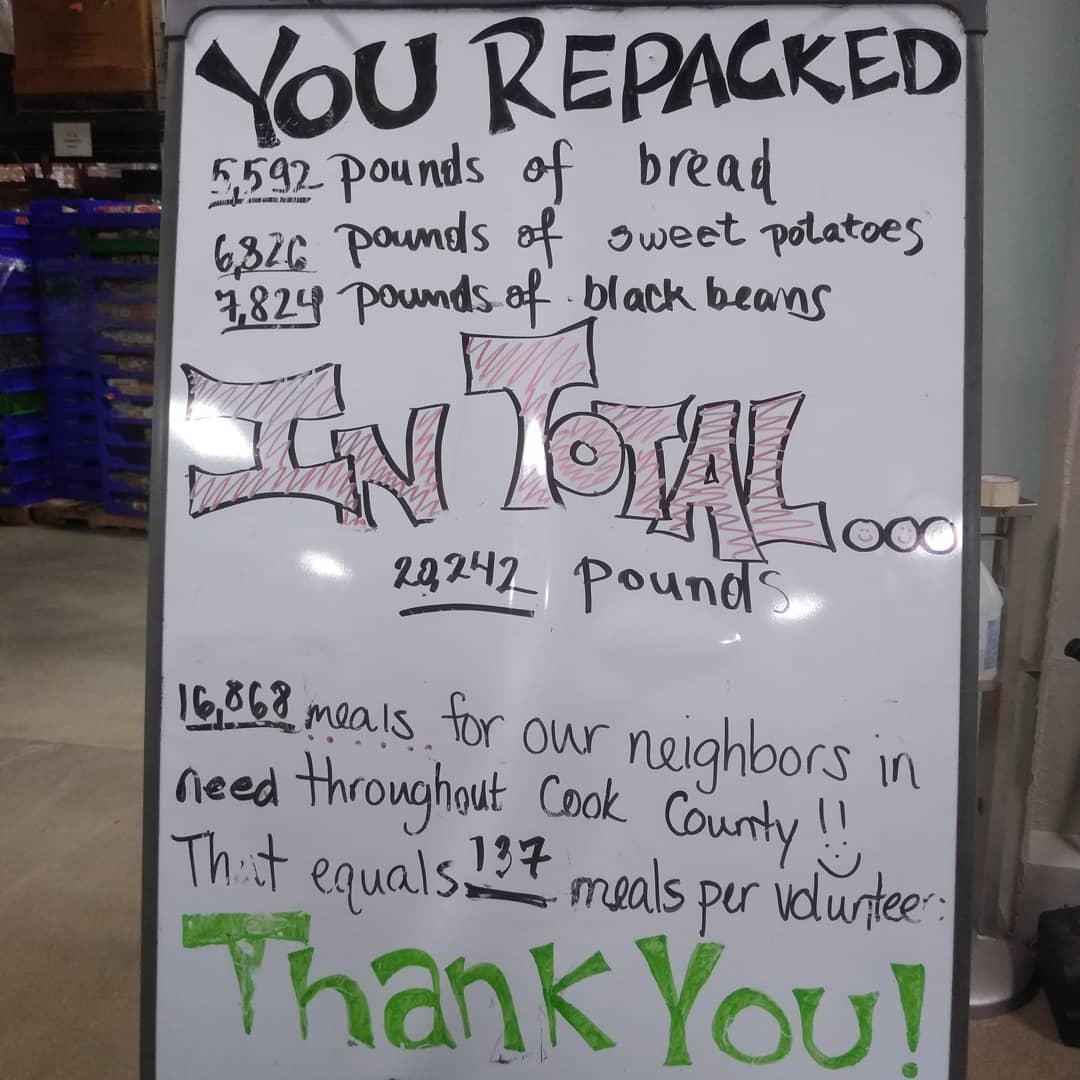 YOU REPACKED
5,592 pounds of bread
6,826 pounds of sweet potatoes
7,824 pounds of black beans
IN TOTAL...
20,242 pounds
16,868 meals for our neighbors in
need throughout Cook County!!
That equals 137 meals per volunteer:
Thank You!